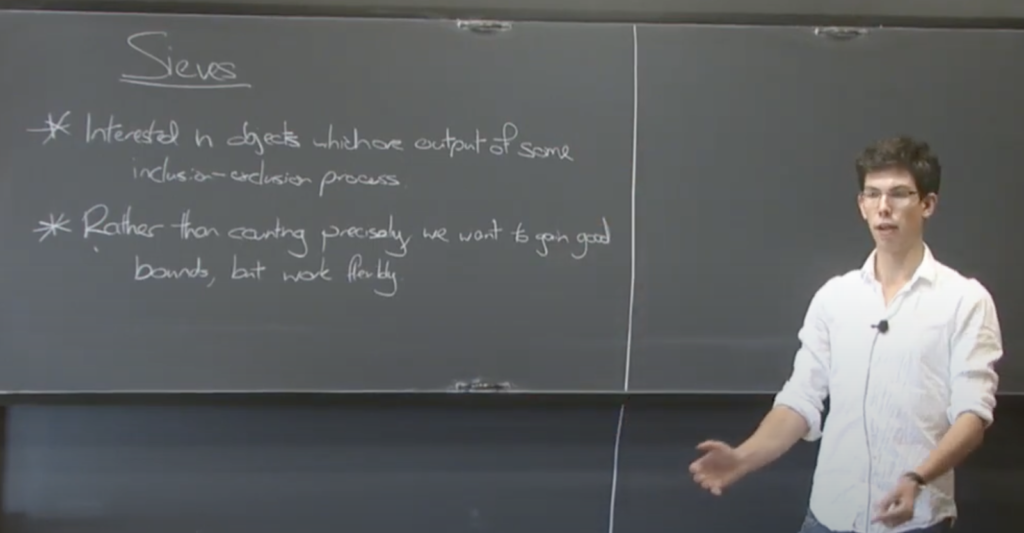 Sieves
* Interested in objects which are output of some
inclusion-exclusion process.
* Rather than counting precisely, we want to gain good
bounds, but work flexibly.